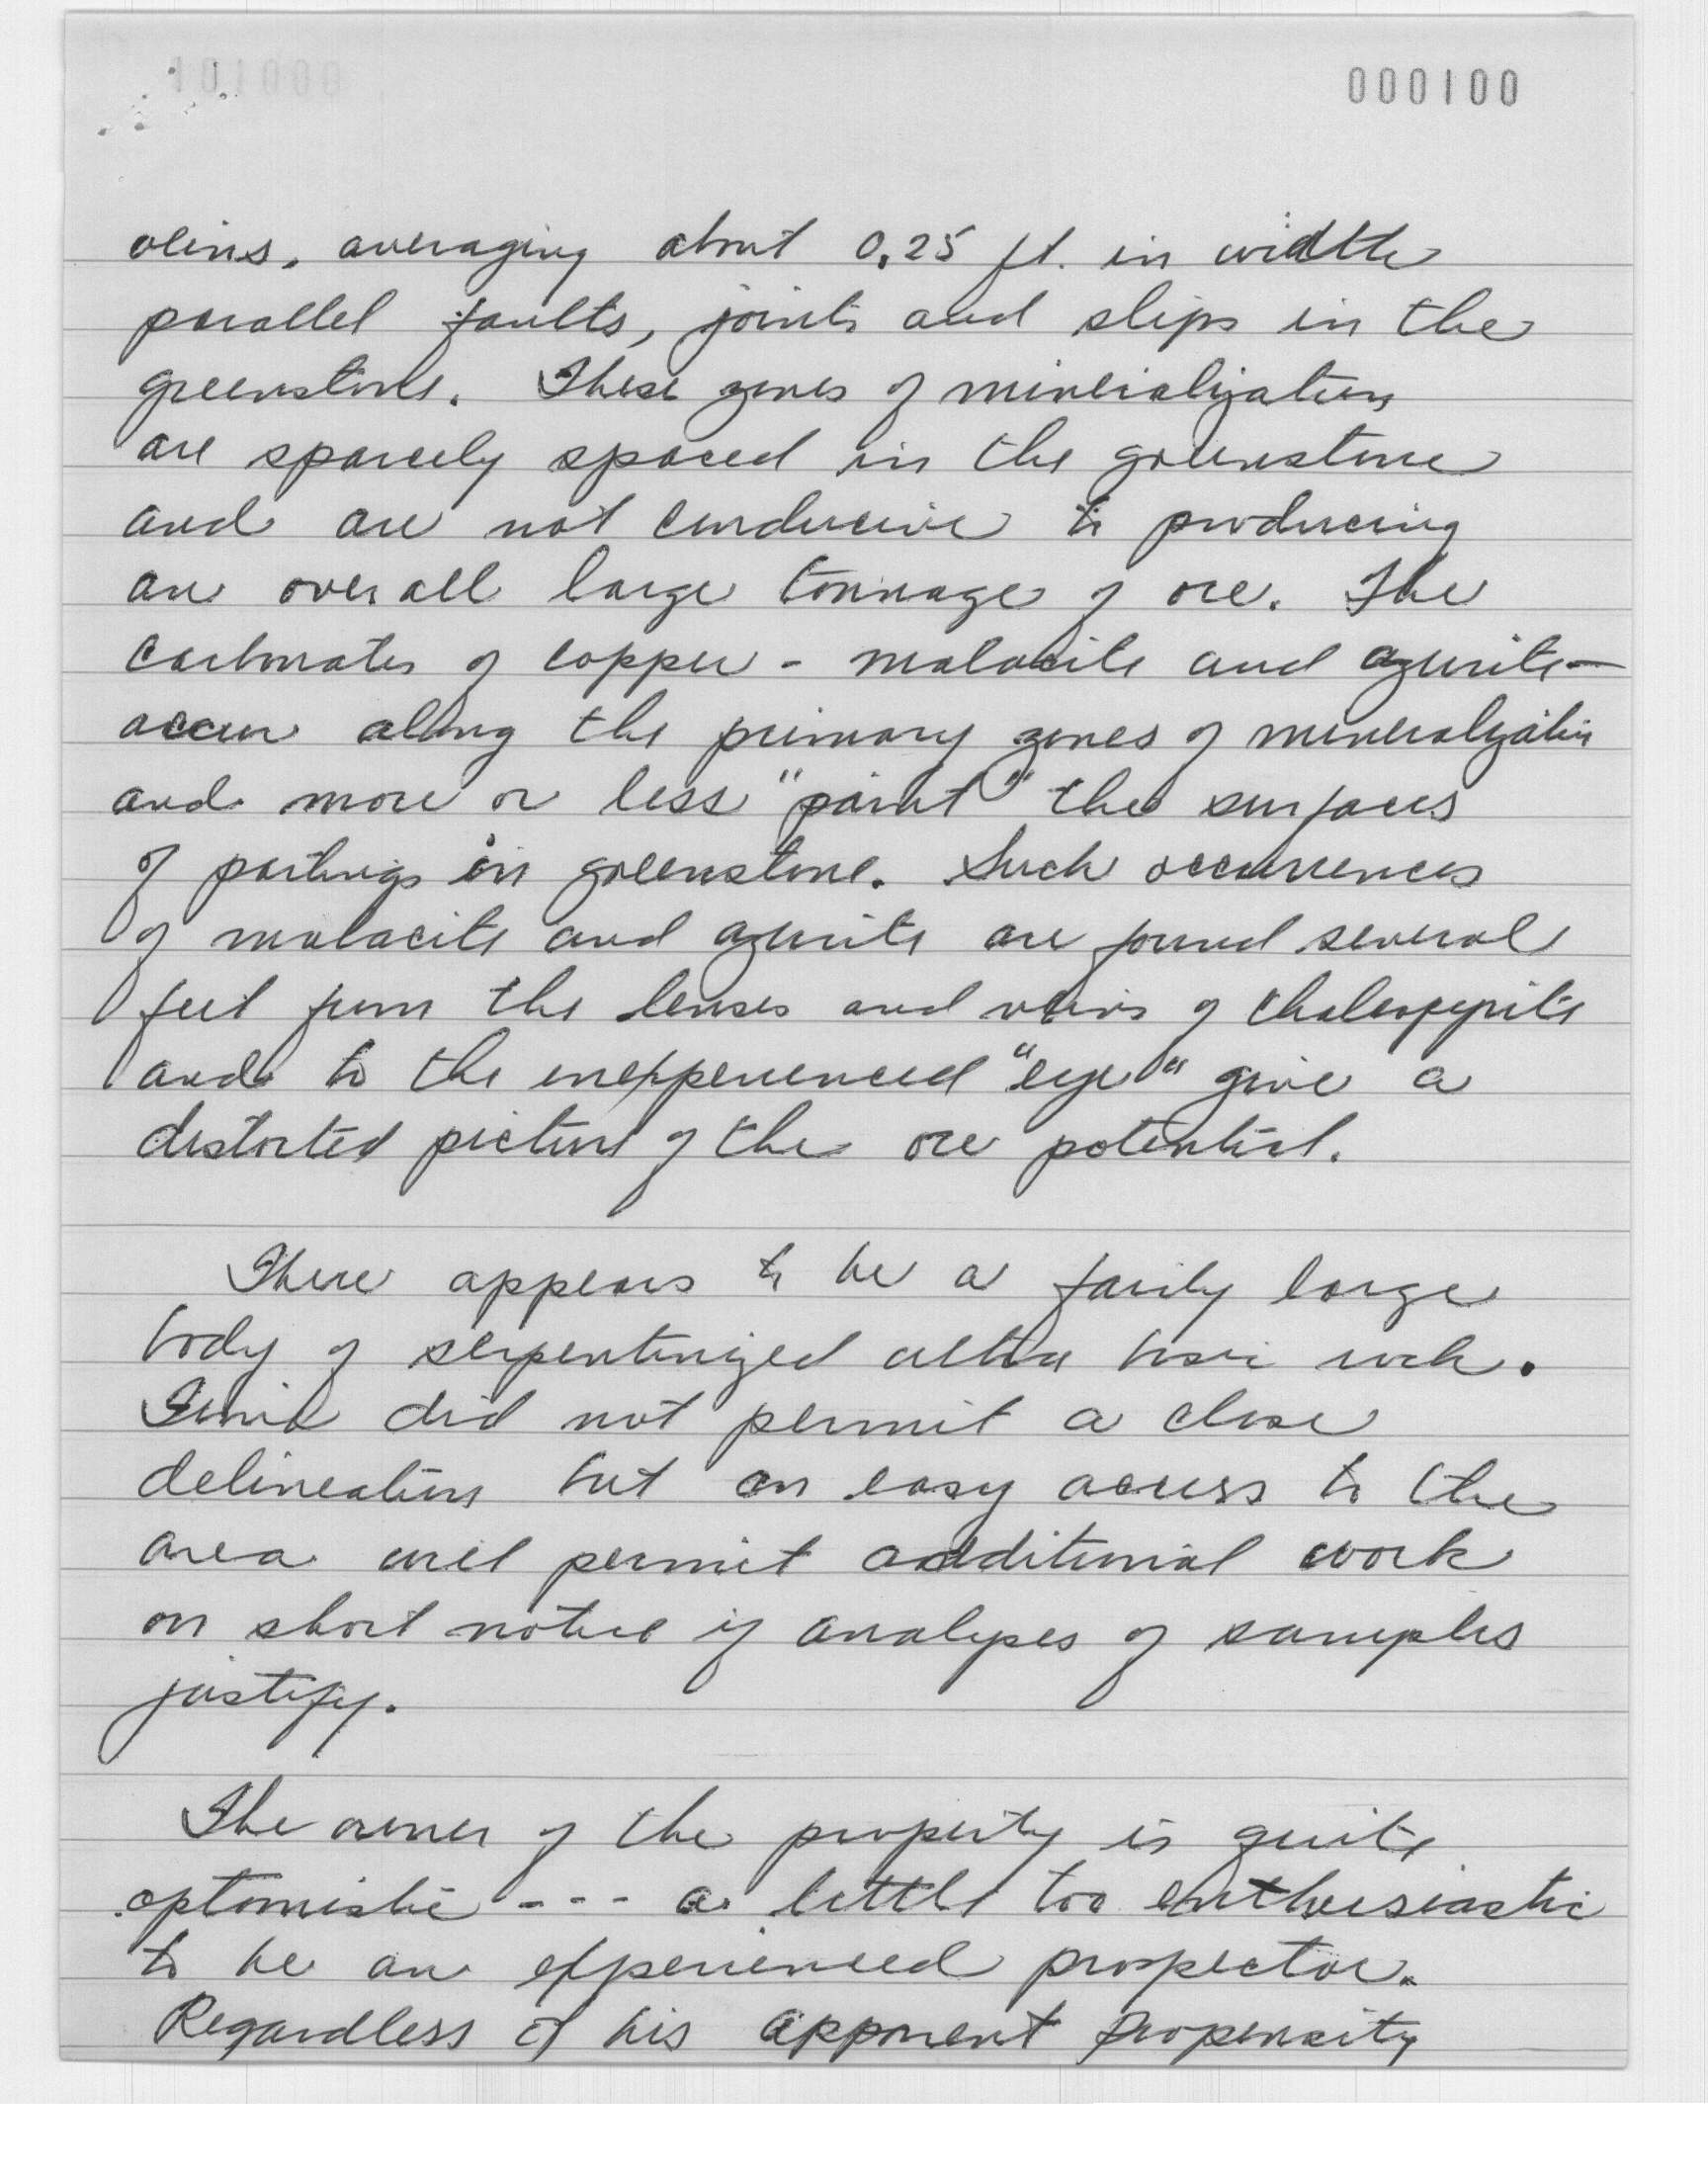 000100
veins, averaging about 0.25 ft. in width
parallel faults, joints and slips in the
greenstone. These zones of mineralization
are sparcely spaced in the greenstone
and are not conducive to producing
an over all large tonnage of ore. The
carbonates of copper - malacite and azurite -
occur along the primary zones of mineralization
and more or less "paint" the surfaces
of partings in greenstone. Such occurrences
of malacite and azurite are found several
feet from the lenses and veins of chalcopyrite
and to the inexperienced "eye" give a
distorted picture of the ore potential.
There appears to be a fairly large
body of serpentinized ultra basic rock.
Time did not permit a close
delineation but an easy access to the
area will permit additional work
on short notice if analyses of samples
justify.
The owner of the property is quite
optomistic --- a little too enthusiastic
to be an experienced prospector.
Regardless of his apparent propensity